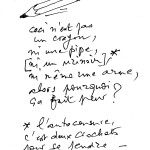 ceci n'est pas
un crayon,
ni une pipe,
[ni un miroir] *
ni même une arme,
alors pourquoi
ça fait peur ?
* l'autocensure,
c'est deux crochets
pour se rendre